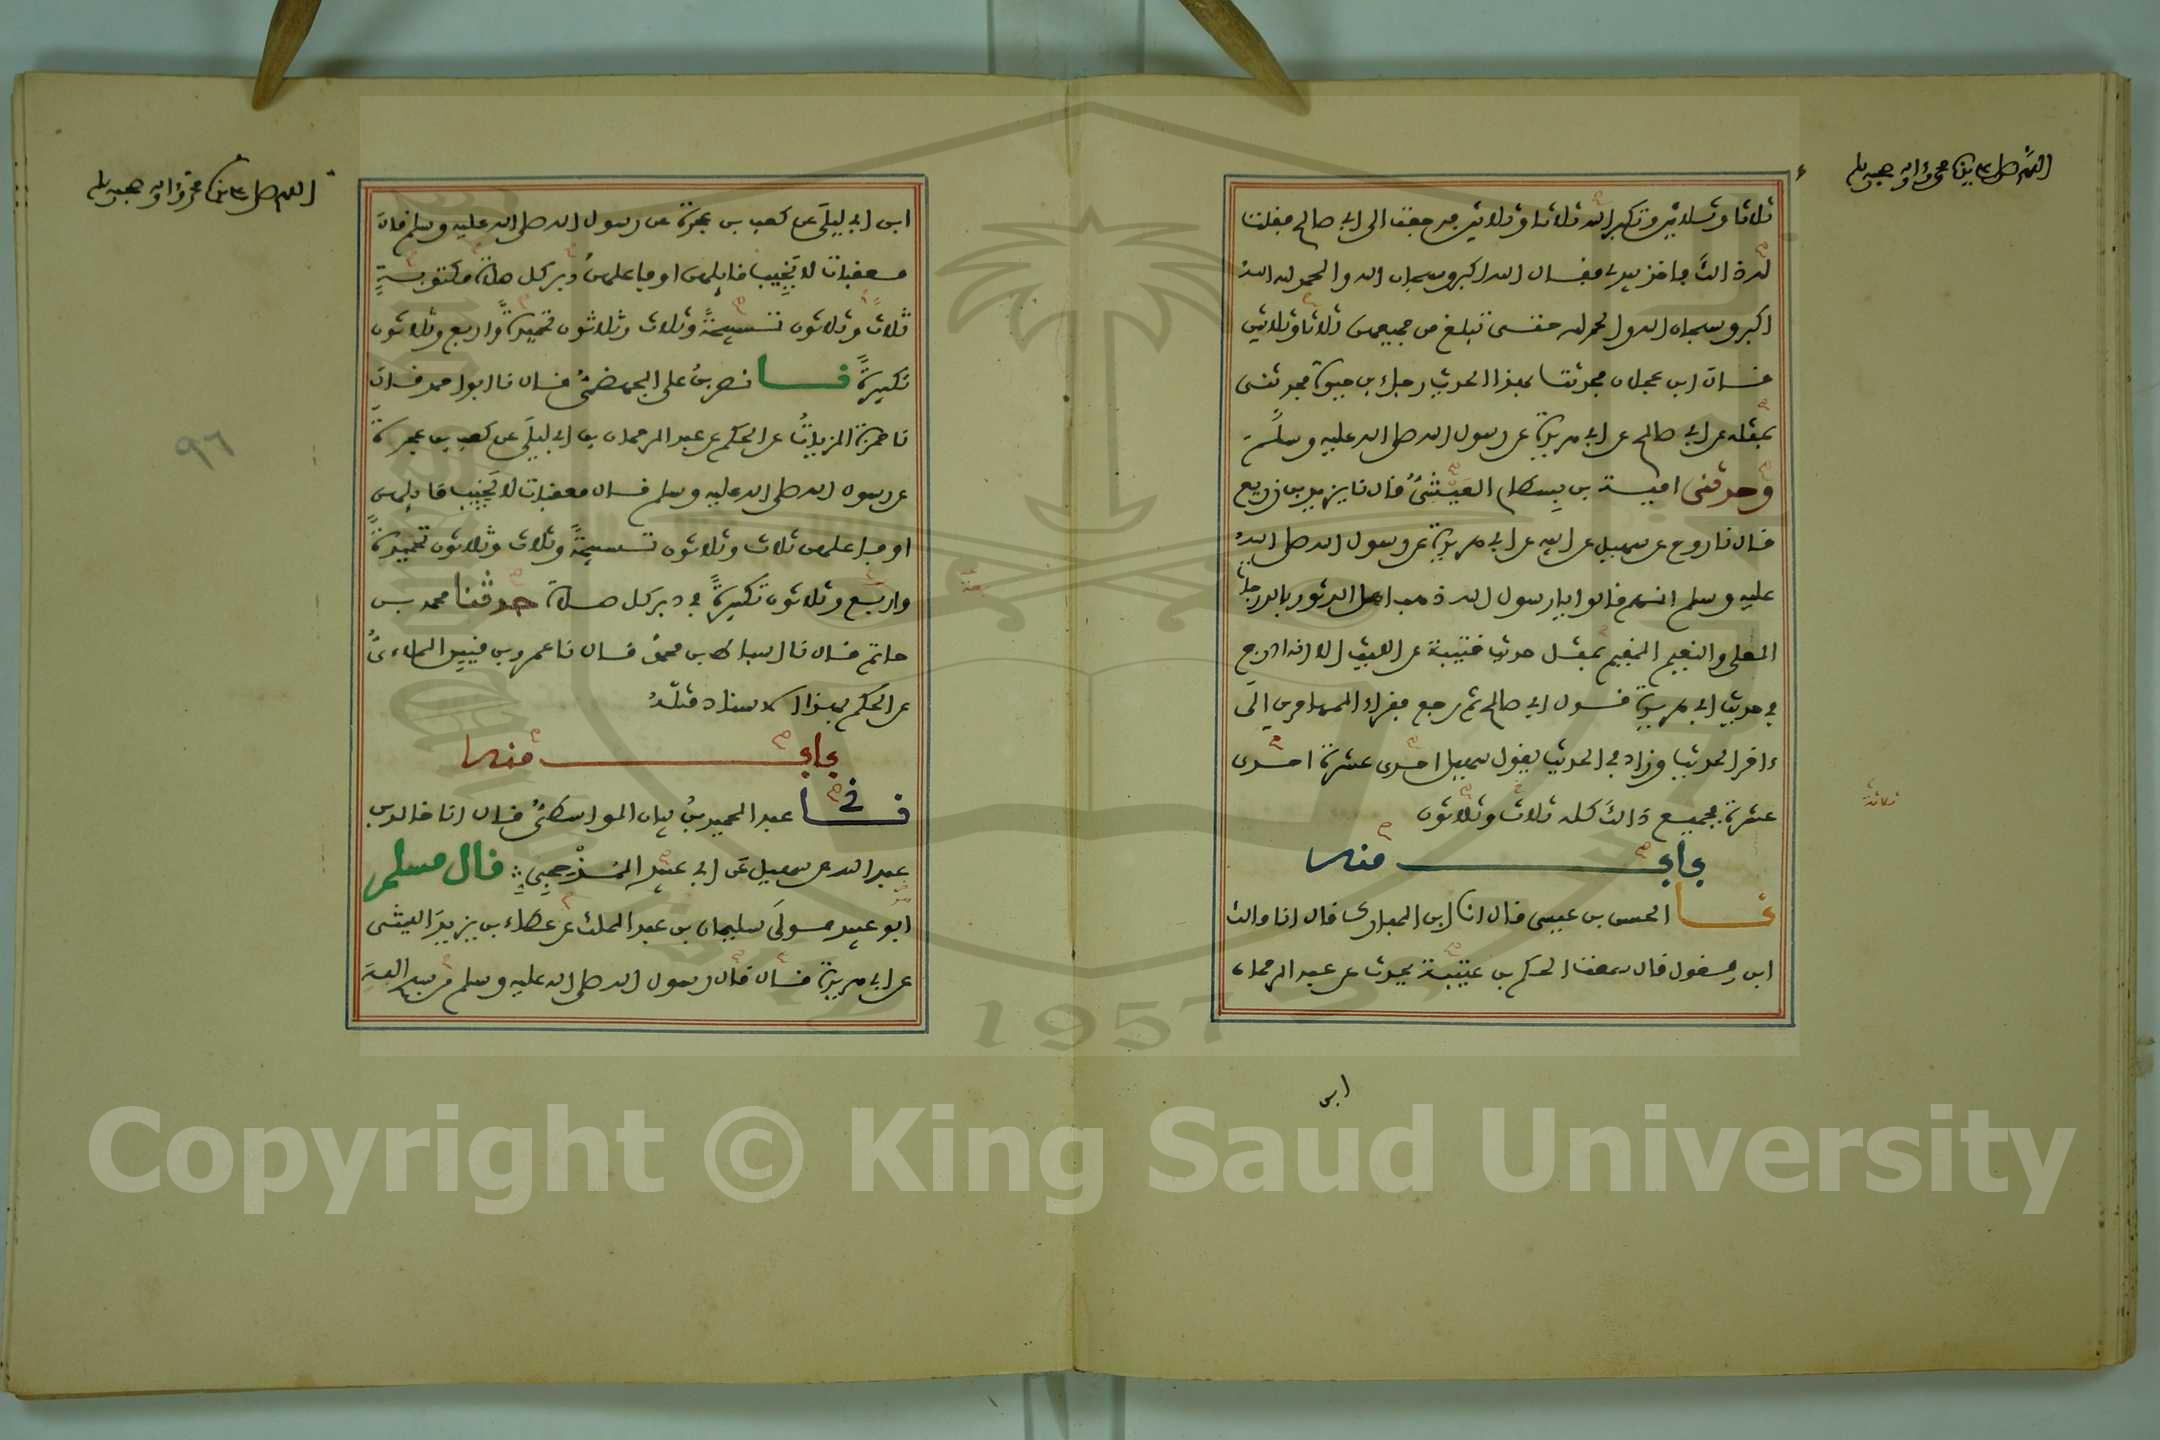 اللهم صل على سيدنا محمد وآله وصحبه وسلم
ثلاثا وثلاثين وتكبر الله ثلاثا وثلاثين فرجعت الى ابي صالح فقلت
له ذالك فاخذ بيدي فقال الله اكبر وسبحان الله والحمد لله الله
اكبر وسبحان الله والحمد لله حتى تبلغ من جميعهن ثلاثا وثلاثين
قال ابن عجلان فحدثت بهذا الحديث رجاء بن حيوة فحدثني
بمثله عن ابي صالح عن ابي هريرة عن رسول الله صلى الله عليه وسلم
وحدثني امية بن بسطام العيشي قال نا يزيد بن زريع
قال نا روح عن سهيل عن ابيه عن ابي هريرة عن رسول الله صلى الله
عليه وسلم انهم قالوا يا رسول الله ذهب اهل الدثور بالدرجات
العلى والنعيم المقيم بمثل حديث قتيبة عن الليث الا انه ادرج
في حديث ابي هريرة قول ابي صالح ثم رجع فقراء المهاجرين الى
ءاخر الحديث وزاد في الحديث يقول سهيل احدى عشرة احدى
عشرة فجميع ذالك كله ثلاث وثلاثون
ثلاثة
باب منه
نا الحسن بن عيسى قال انا ابن المبارك قال انا مالك
ابن مغول قال سمعت الحكم بن عتيبة يحدث عن عبد الرحمان
ابن
اللهم صل على سيدنا محمد وآله وصحبه وسلم
ابن ابي ليلى عن كعب بن عجرة عن رسول الله صلى الله عليه وسلم قال
معقبات لا يخيب قايلهن او فاعلهن دبر كل صلاة مكتوبة
ثلاث وثلاثون تسبيحة وثلاث وثلاثون تحميدة واربع وثلاثون
تكبيرة نا نصر بن علي الجهضمي قال نا ابو احمد قال
نا حمزة الزيات عن الحكم عن عبد الرحمان بن ابي ليلى عن كعب بن عجرة
عن رسول الله صلى الله عليه وسلم قال معقبات لا يخيب قايلهن
او فاعلهن ثلاث وثلاثون تسبيحة وثلاث وثلاثون تحميدة
واربع وثلاثون تكبيرة في دبر كل صلاة حدثنا محمد بن
حاتم قال نا اسباط بن محمد قال نا عمرو بن قيس الملاءي
عن الحكم بهذا الاسناد مثله
باب منه
نا عبد الحميد بن بيان الواسطي قال انا خالد بن
عبد الله عن سهيل عن ابي عبيد المذحجي قال مسلم
ابو عبيد مولى سليمان بن عبد الملك عن عطاء بن يزيد الليثي
عن ابي هريرة قال قال رسول الله صلى الله عليه وسلم من سبح الله
٩٦
1957
Copyright © King Saud University